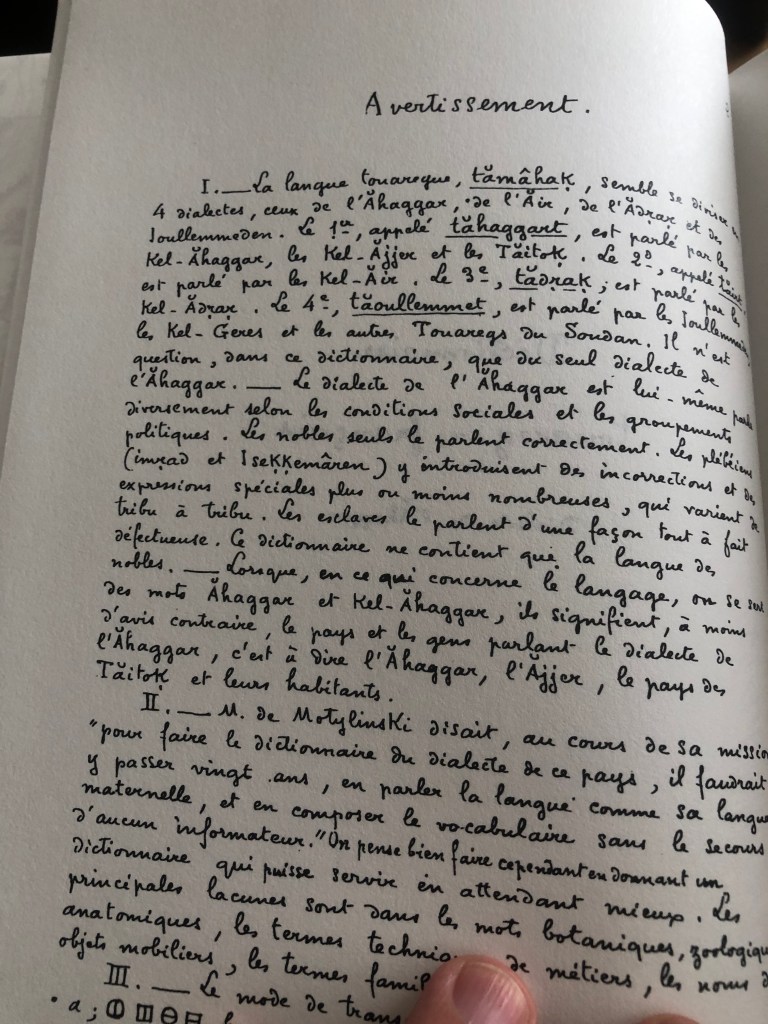 Avertissement.
I.__La langue touareque, tămâhaḳ, semble se diviser en
4 dialectes, ceux de l'Ăhaggar, de l'Ăir, de l'Ădṛaṛ et des
Ioullemmeden. Le 1er, appelé tăhaggart, est parlé par les
Kel-Ăhaggar, les Kel-Ăjjer et les Tăitoḳ. Le 2d, appelé
est parlé par les Kel-Ăir. Le 3e, tădṛaḳ, est parlé par les
Kel-Ădṛaṛ. Le 4e, tăoullemmet, est parlé par les Ioullemmeden,
les Kel-Geres et les autres Touaregs du Soudan. Il n'est
question, dans ce dictionnaire, que du seul dialecte de
l'Ăhaggar.__Le dialecte de l'Ăhaggar est lui-même parlé
diversement selon les conditions sociales et les groupements
politiques. Les nobles seuls le parlent correctement. Les plébéiens
(imṛad et Iseḳḳemâren) y introduisent des incorrections et des
expressions spéciales plus ou moins nombreuses, qui varient de
tribu à tribu. Les esclaves le parlent d'une façon tout à fait
défectueuse. Ce dictionnaire ne contient que la langue des
nobles.__Lorsque, en ce qui concerne le langage, on se sert
des mots Ăhaggar et Kel-Ăhaggar, ils signifient, à moins
d'avis contraire, le pays et les gens parlant le dialecte de
l'Ăhaggar, c'est à dire l'Ăhaggar, l'Ăjjer, le pays des
Tăitoḳ et leurs habitants.
II.__M. de Motylinski disait, au cours de sa mission
"pour faire le dictionnaire du dialecte de ce pays, il faudrait
y passer vingt ans, en parler la langue comme sa langue
maternelle, et en composer le vocabulaire sans le secours
d'aucun informateur." On pense bien faire cependant en donnant un
dictionnaire qui puisse servir en attendant mieux. Les
principales lacunes sont dans les mots botaniques, zoologiques,
anatomiques, les termes de métiers, les noms d
objets mobiliers, les termes
III.__Le mode de
a; ⵀ